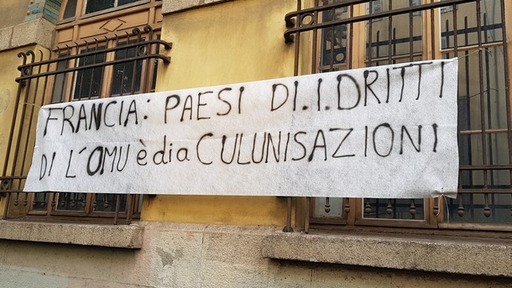 FRANCIA: PAESI DI.I.DRITTI
DI L'OMU è di a CULUNISAZIONI